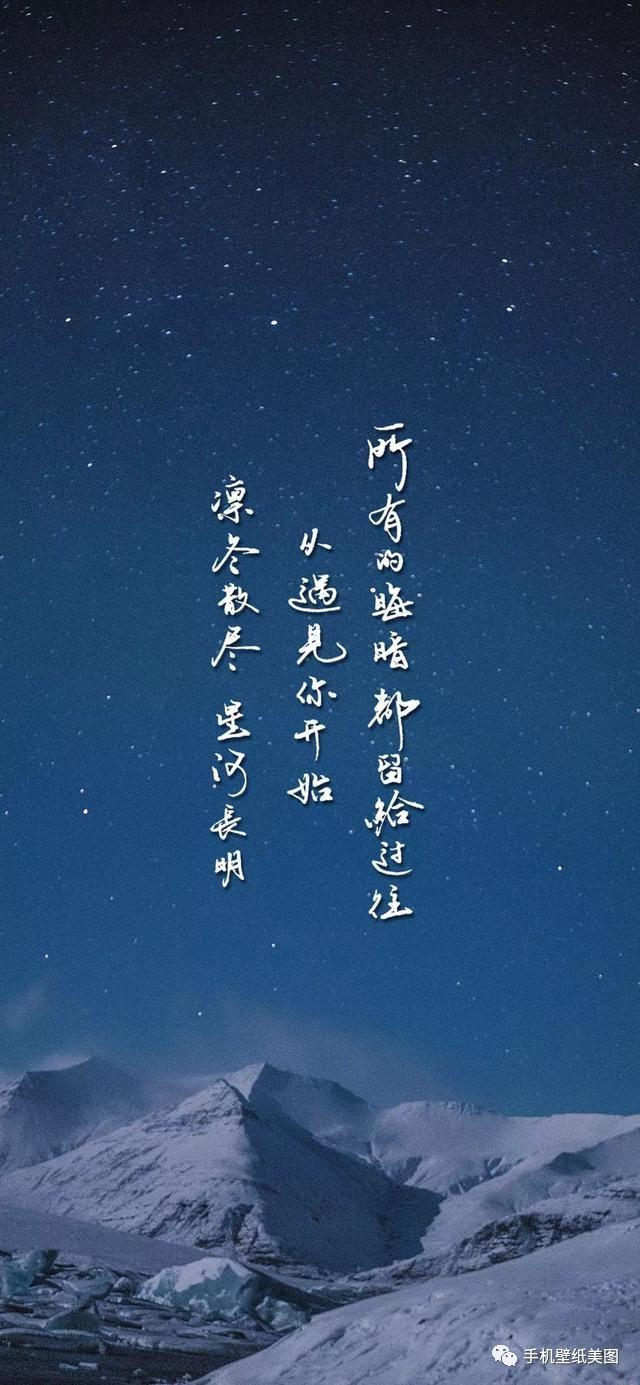 所有的晦暗都留給过往
从遇見你开始
凛冬散尽 星河長明
手机壁纸美图